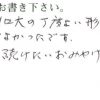 お書き下さい。
口大の丁度よい形
なかったです。
続けたいおみやげ